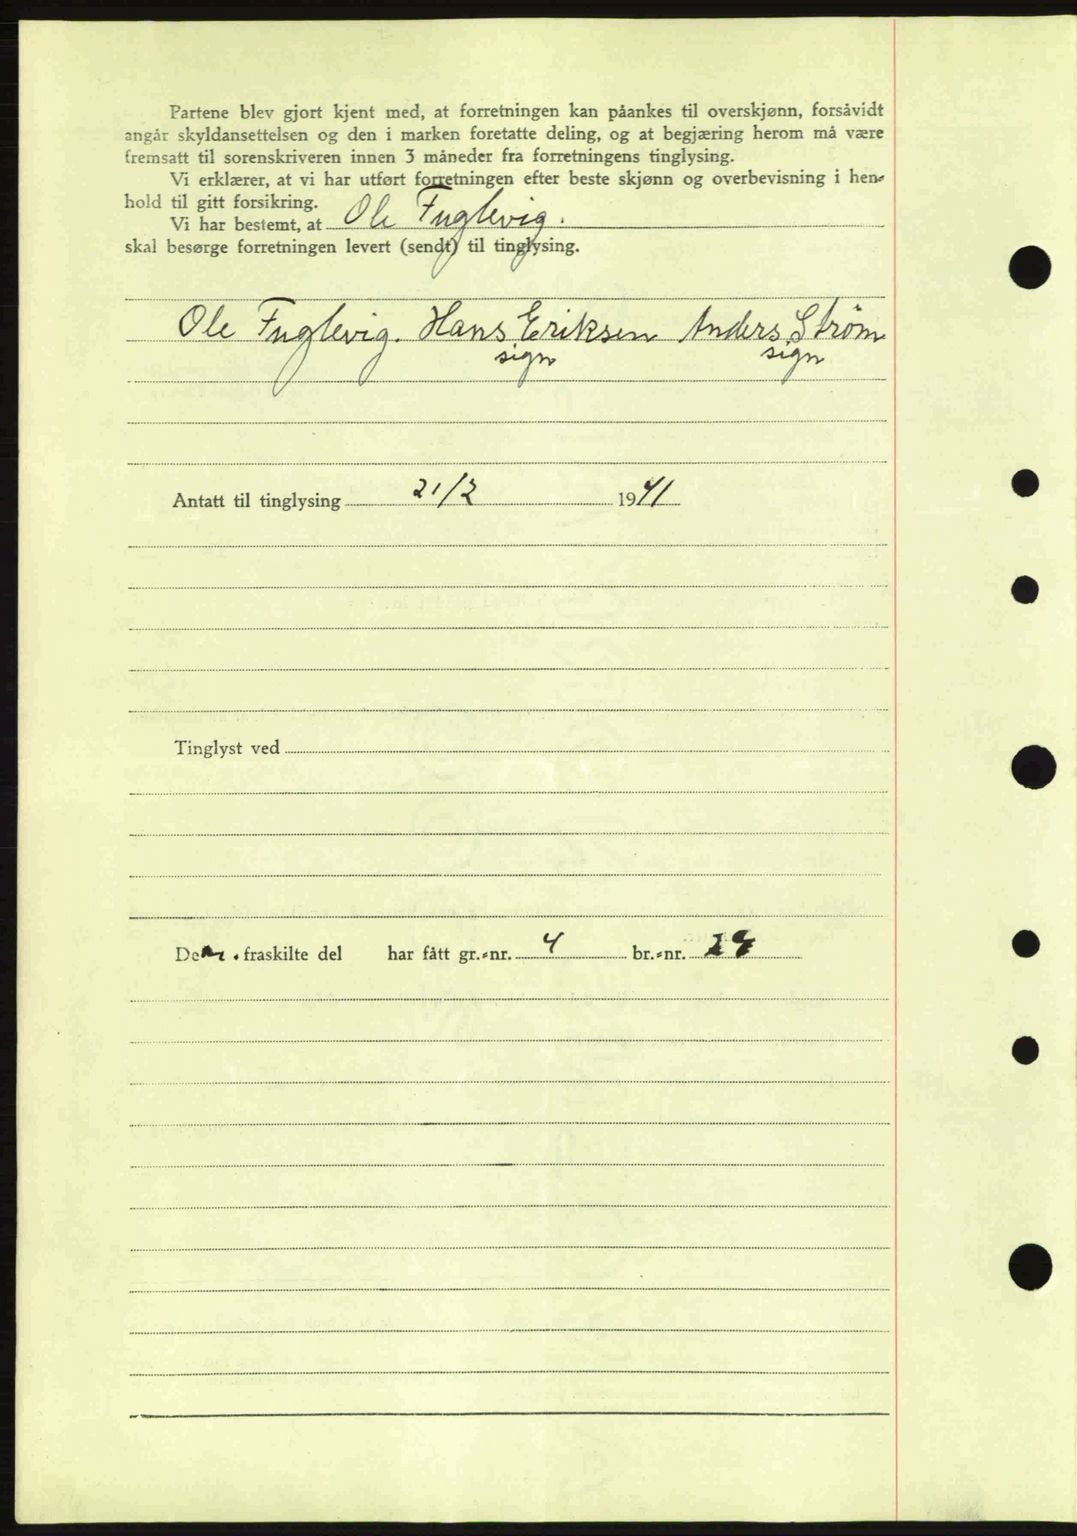 Partene blev gjort kjent med, at forretningen kan påankes til overskjønn, forsåvidt
angår skyldansettelsen og den i marken foretatte deling, og at begjæring herom må være
fremsatt til sorenskriveren innen 3 måneder fra forretningens tinglysing.
Vi erklærer, at vi har utført forretningen efter beste skjønn og overbevisning i hen-
hold til gitt forsikring.
Vi har bestemt, at Ole Fuglevig.
skal besørge forretningen levert (sendt) til tinglysing.
Ole Fuglevig. Hans Eriksen Anders Strøm
sign sign
Antatt til tinglysing 21/2 1941
Tinglyst ved
Den fraskilte del har fått gr.-nr. 4 br.-nr.